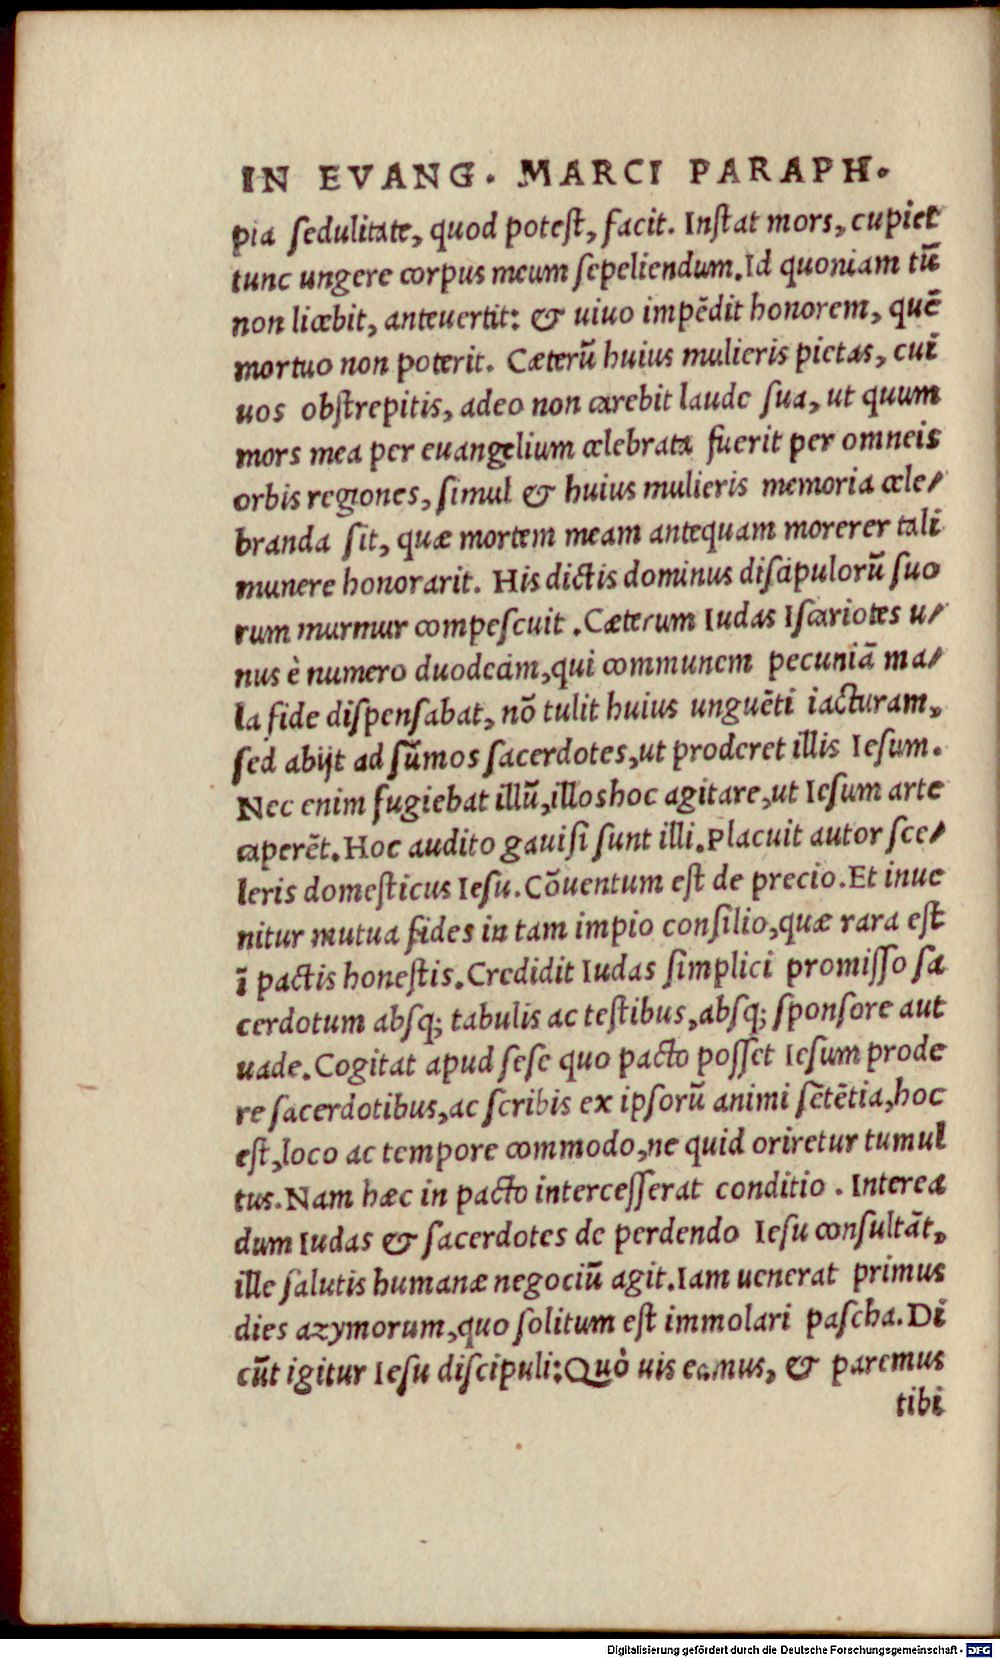 IN EVANG. MARCI PARAPH.
pia ſedulitate, quod poteſt, facit. Inſtat mors, cupiet
tunc ungere corpus meum ſepeliendum. Id quoniam tū
non licebit, anteuertit: & uiuo impēdit honorem, quē
mortuo non poterit. Cæterū huius mulieris pietas, cuī
uos obſtrepitis, adeo non carebit laude ſua, ut quum
mors mea per euangelium celebrata fuerit per omneis
orbis regiones, ſimul & huius mulieris memoria cele/
branda ſit, quæ mortem meam antequam morerer tali
munere honorarit. His dictis dominus diſcipulorū ſuo
rum murmur compeſcuit. Cæterum Iudas Iſcariotes u/
nus è numero duodecim, qui communem pecuniā ma/
la fide diſpenſabat, nō tulit huius unguēti iacturam,
ſed abijt ad ſūmos ſacerdotes, ut proderet illis Ieſum.
Nec enim fugiebat illū, illos hoc agitare, ut Ieſum arte
caperēt. Hoc audito gauiſi ſunt illi. Placuit autor ſce/
leris domeſticus Ieſu. Cōuentum eſt de precio. Et inue
nitur mutua fides in tam impio conſilio, quæ rara eſt
ī pactis honeſtis. Credidit Iudas ſimplici promiſſo ſa
cerdotum abſq; tabulis ac teſtibus, abſq; ſponſore aut
uade. Cogitat apud ſeſe quo pacto poſſet Ieſum prode
re ſacerdotibus, ac ſcribis ex ipſorū animi ſētētia, hoc
eſt, loco ac tempore commodo, ne quid oriretur tumul
tus. Nam hæc in pacto interceſſerat conditio. Interea
dum Iudas & ſacerdotes de perdendo Ieſu conſultāt,
ille ſalutis humanæ negociū agit. Iam uenerat primus
dies azymorum, quo ſolitum eſt immolari paſcha. Di
cūt igitur Ieſu diſcipuli: Quò uis eamus, & paremus
tibi
Digitalisierung gefördert durch die Deutsche Forschungsgemeinschaft - DFG